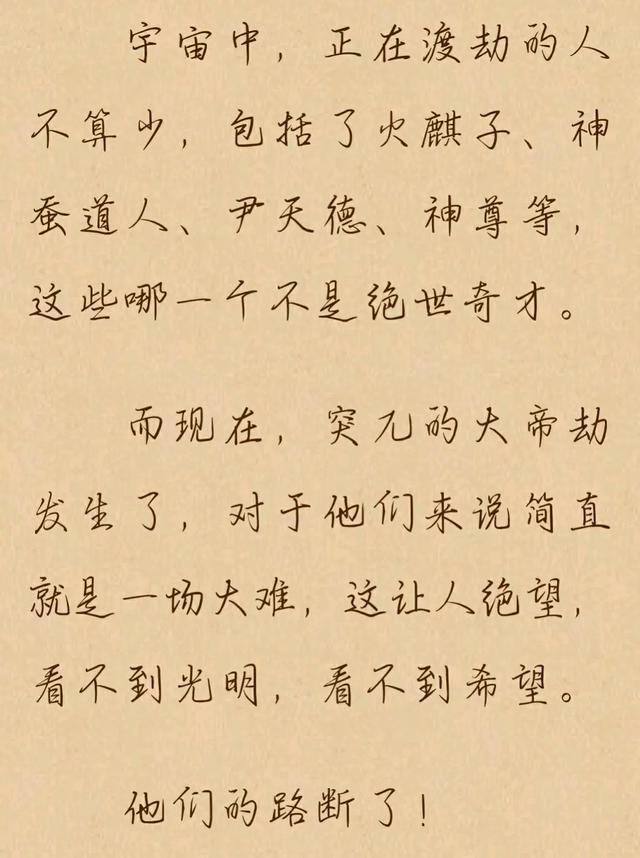 宇宙中，正在渡劫的人
不算少，包括了火麒子、神
蚕道人、尹天德、神尊等，
这些哪一个不是绝世奇才。
而现在，突兀的大帝劫
发生了，对于他们来说简直
就是一场大难，这让人绝望，
看不到光明，看不到希望。
他们的路断了！